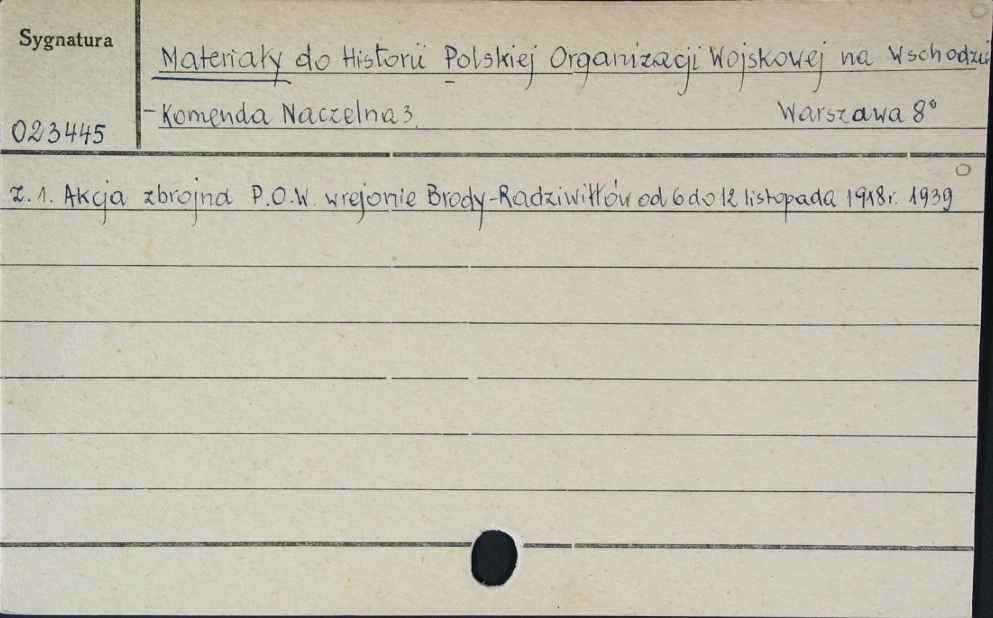 Sygnatura
Materiały do Historii Polskiej Organizacji Wojskowej na Wschodzie
- Komenda Naczelna 3 Warszawa 8°
023445
z. 1. Akcja zbrojna P.O.W. w rejonie Brody-Radziwiłłów od 6 do 12 listopada 1918 r. 1939